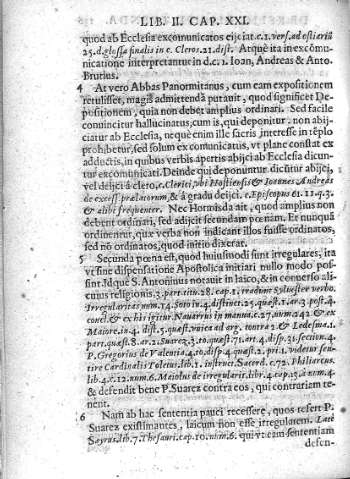 LIB. II. CAP. XXI.
quod ab Ecclesia excomunicatos eijciat c.1. vers. ad ostiariū
25. d. glossa finalis in c. Cleros. 21. dist. Atque ita in excōmu-
nicatione interpretantur in d.c.1. Ioan, Andreas & Anto.
Brutius.
4 At vero Abbas Panormitanus, cum eam expositionem
retulisset, magis admittenda putavit, quod significet De-
positionem, quia non debet amplius ordinari. Sed facile
convincitur hallucinatus, cum is, qui deponitur. non abij-
ciatur ab Ecclesia, neque enim ille sacris interesse in tēplo
prohibetur, sed solum ex comunicatus, vt plane constat ex
adductis, in quibus verbis apertis abijci ab Ecclesia dicun-
tur excomunicati. Deinde qui deponuntur dicūtur abijci,
vel deijci à clero, c. Clerici, vbi Hostiensis & Ioannes Andreas
de excess. prælatorum, & à gradu deijci. c. Episcopus 61. 11. q. 3.
& alibi frequenter. Nec Hormisda ait, quod amplius non
debent ordinari, sed adijcit secundam pœnam. Et nunquā
ordinentur, quæ verba non indicant illos fuisse ordinatos,
sed nō ordinatos, quod initio dixerat.
5 Secunda pœna est, quod huiusmodi sunt irregulares, ita
vt sine dispensatione Apostolica initiari nullo modo pos-
sint. Id que S. Antoninus notavit in laico, & in converso ali-
cuius religionis. 3. part. titu. 28. cap. 1.
Irregularitas num. 14. Soto in 4. distinct. 25. quæst. 1. ar. 3. post 4.
concl. & ex hi igitur. Navarrus in manua. c. 27. num. 242 & ex
Maiore, in 4. dist. 5. quæst. vnica ad arg. contra 2. & Ledesma 1.
part. quæst. 8. ar. 2. Suarez. 3. to. quæst. 71. art. 4. disp. 31. section. 4.
P. Gregorius de Valentia. 4. to. disp. 4. quæst. 2. pri 1. videtur sen-
tire Cardinalis Toletus. lib. 1. instruct. Sacerd. c. 72. Philiarcus.
lib. 4. c. 12. num. 6. Maiolus de irregularit. libr. 4. cap. 13. à num. 4
& defendit bene P. Suarez contra eos, qui contrariam te-
nent.
6 Nam ab hac sententia pauci recessere, quos refert P.
Suarez existimantes, laicum non esse irregularem. Late
Sayrus. lib. 7. Thesauri. cap. 10. num. 6. qui vt eam sententiam
defen-